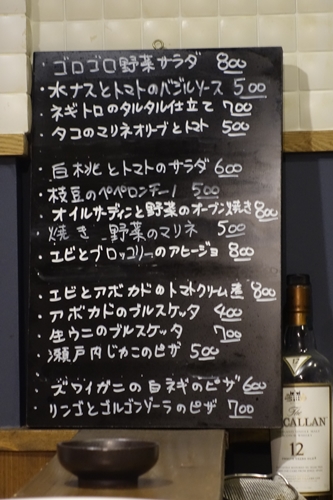 ・ゴロゴロ野菜サラダ 800
・水ナスとトマトのバジルソース 500
・ネギトロのタルタル仕立て 700
・タコのマリネオリーブとトマト 500
・白桃とトマトのサラダ 600
・枝豆のペペロンチーノ 500
・オイルサーディンと野菜のオーブン焼き 800
・焼き 野菜のマリネ 500
・エビとブロッコリーのアヒージョ 800
・エビとアボカドのトマトクリーム煮 800
・アボカドのブルスケッタ 400
・生ウニのブルスケッタ 700
・瀬戸内じゃこのピザ 500
・ズワイガニの白ネギのピザ 600
・リンゴとゴルゴンゾーラのピザ 700
The
MACALLAN
12